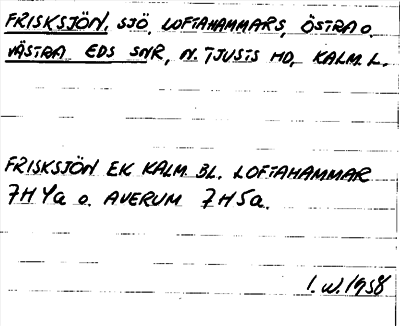 FRISKSJÖN, SJÖ, LOFTAHAMMARS, ÖSTRA O.
VÄSTRA EDS SNR, N. TJUSTS HD, KALM. L.
FRISKSJÖN EK KALM. BL. LOFTAHAMMAR
7H 4a O. AVERUM 7H 5a.
I. W. 1958